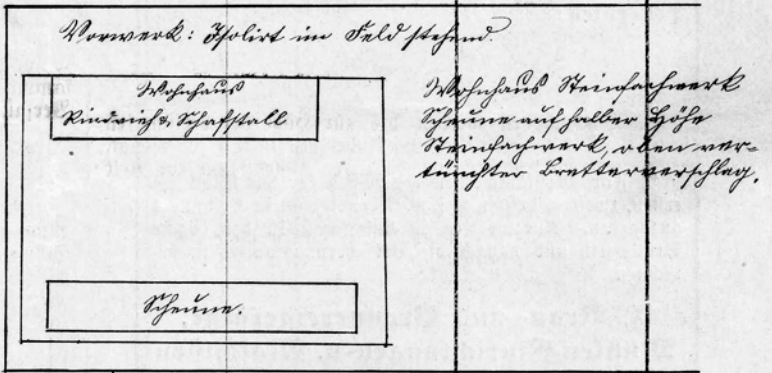 Vorwerk: Isolirt im Feld stehend.
Wohnhaus
Rindvieh & Schafstall
Scheune.
Wohnhaus Steinfachwerk
Scheune auf halber Höhe
Steinfachwerk, oben ver-
tünchter Bretterverschlag.